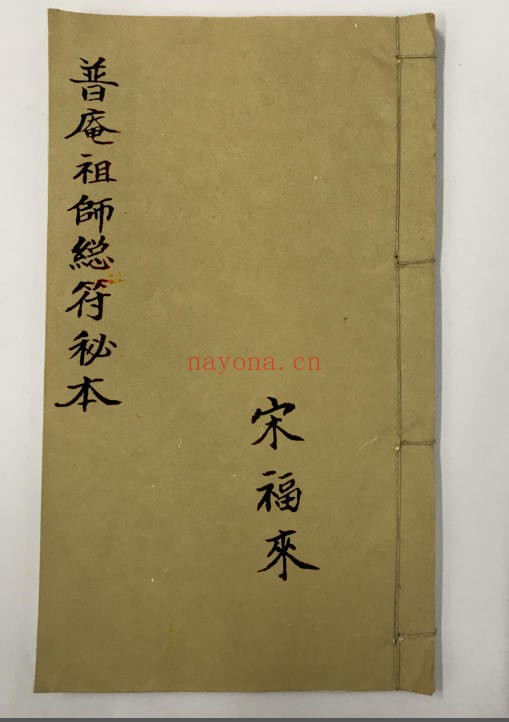 普庵祖師總符秘本
宋福來
nayona.cn